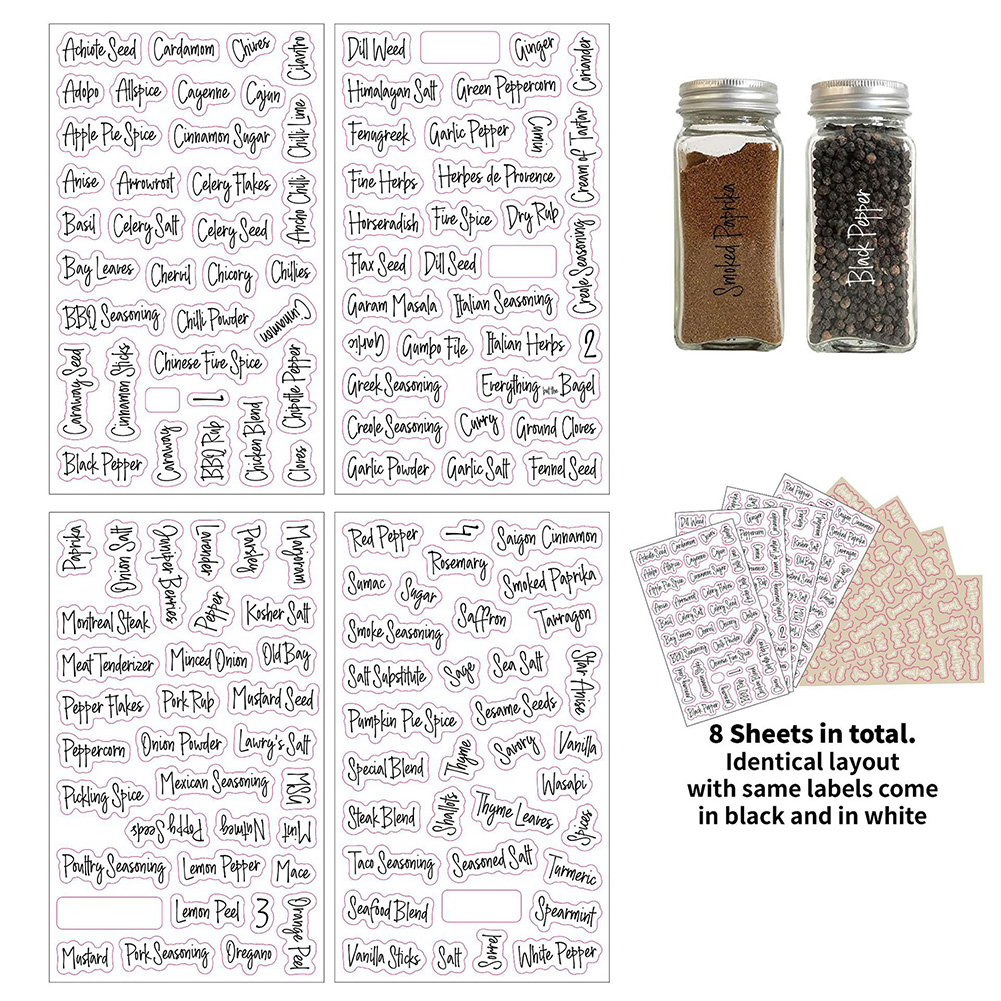 Achiote Seed
Cardamom
Chives
Cilantro
Adobo
Allspice
Cayenne
Cajun
Apple Pie Spice
Cinnamon Sugar
Chilli Lime
Anise
Arrowroot
Celery Flakes
Ancho Chilli
Basil
Celery Salt
Celery Seed
Bay Leaves
Chervil
Chicory
Chillies
BBQ Seasoning
Chilli Powder
Cinnamon
Caraway Seed
Cinnamon Sticks
Chinese Five Spice
Chipotle Pepper
1
Black Pepper
Caraway
BBQ Rub
Chicken Blend
Cloves
Dill Weed
Ginger
Coriander
Himalayan Salt
Green Peppercorn
Fenugreek
Garlic Pepper
Cumin
Cream of Tartar
Fine Herbs
Herbes de Provence
Horseradish
Five Spice
Dry Rub
Creole Seasoning
Flax Seed
Dill Seed
Garam Masala
Italian Seasoning
Garlic
Gumbo File
Italian Herbs
2
Greek Seasoning
Everything but the Bagel
Creole Seasoning
Curry
Ground Cloves
Garlic Powder
Garlic Salt
Fennel Seed
Paprika
Onion Salt
Juniper Berries
Lavender
Parsley
Marjoram
Montreal Steak
Pepper
Kosher Salt
Meat Tenderizer
Minced Onion
Old Bay
Pepper Flakes
Pork Rub
Mustard Seed
Peppercorn
Onion Powder
Lawry's Salt
Pickling Spice
Mexican Seasoning
MSG
Poppy Seeds
Nutmeg
Mint
Poultry Seasoning
Lemon Pepper
Mace
Lemon Peel
3
Orange Peel
Mustard
Pork Seasoning
Oregano
Red Pepper
4
Saigon Cinnamon
Rosemary
Sumac
Sugar
Smoked Paprika
Smoke Seasoning
Saffron
Tarragon
Salt Substitute
Sage
Sea Salt
Star Anise
Pumpkin Pie Spice
Sesame Seeds
Special Blend
Thyme
Savory
Vanilla
Wasabi
Steak Blend
Shallots
Thyme Leaves
Spices
Taco Seasoning
Seasoned Salt
Turmeric
Seafood Blend
Spearmint
Vanilla Sticks
Salt
Sorrel
White Pepper
Smoked Paprika
Black Pepper
8 Sheets in total.
Identical layout
with same labels come
in black and in white